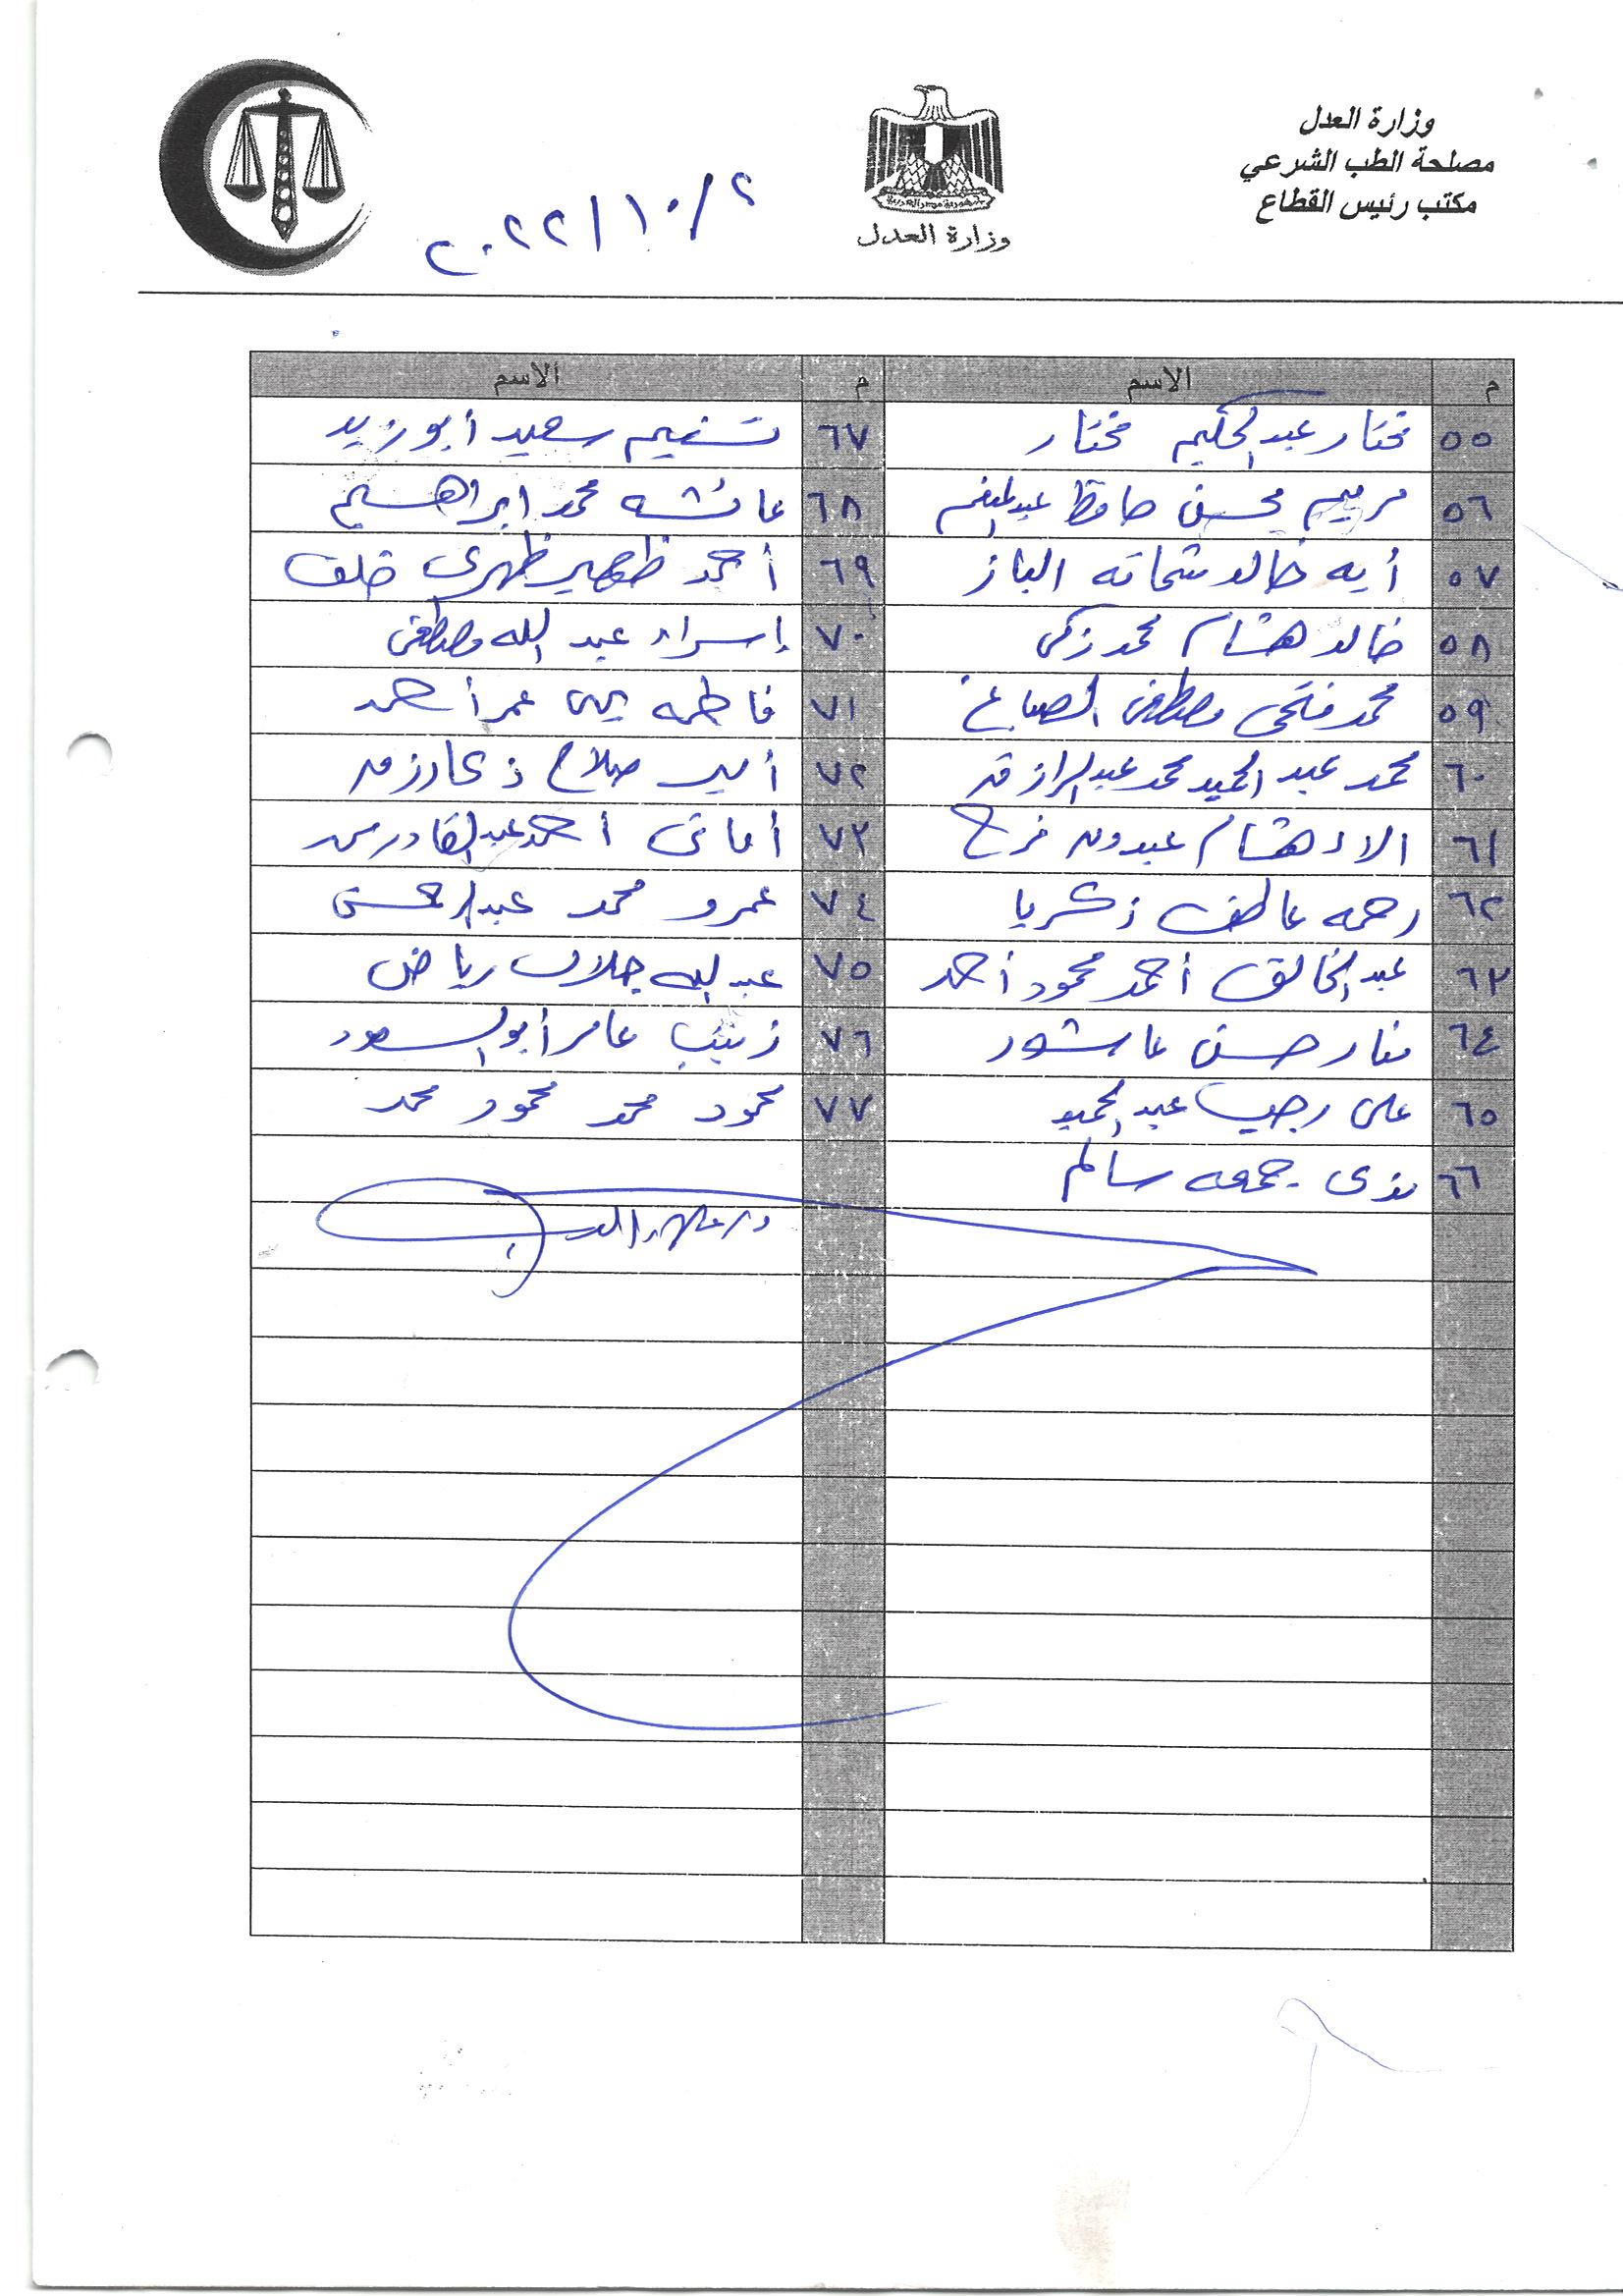 وزارة العدل
مصلحة الطب الشرعي
مكتب رئيس القطاع
جمهورية مصر العربية
وزارة العدل
٢٠٢٢/١٠/٢
م الاسم م الاسم
٥٥ مختار عبد الحكيم مختار
٥٦ مريم محسن حافظ عبد المنعم
٥٧ أيه خالد شحاته الباز
٥٨ خالد هشام محمد زكى
٥٩ محمد فتحى مصطفى الصباغ
٦٠ محمد عبد الحميد محمد عبد الرازق
٦١ الاء هشام عبدون فرج
٦٢ رحمه عاطف زكريا
٦٣ عبد الخالق أحمد محمود أحمد
٦٤ منار حسن عاشور
٦٥ على رجب عبد الحميد
٦٦ ندى جمعه سالم
٦٧ تسنيم سعيد أبو زيد
٦٨ عائشه محمد ابراهيم
٦٩ أحمد ظهير ظهرى خلف
٧٠ إسراء عبد الله مصطفى
٧١ فاطمه يحى عمر أحمد
٧٢ أمير صلاح
٧٣ أمانى أحمد عبد القادر
٧٤ عمرو محمد عبد الرحمن
٧٥ عبد الله جلال رياض
٧٦ زينب عامر أبو السعود
٧٧ محمود محمد محمود محمد